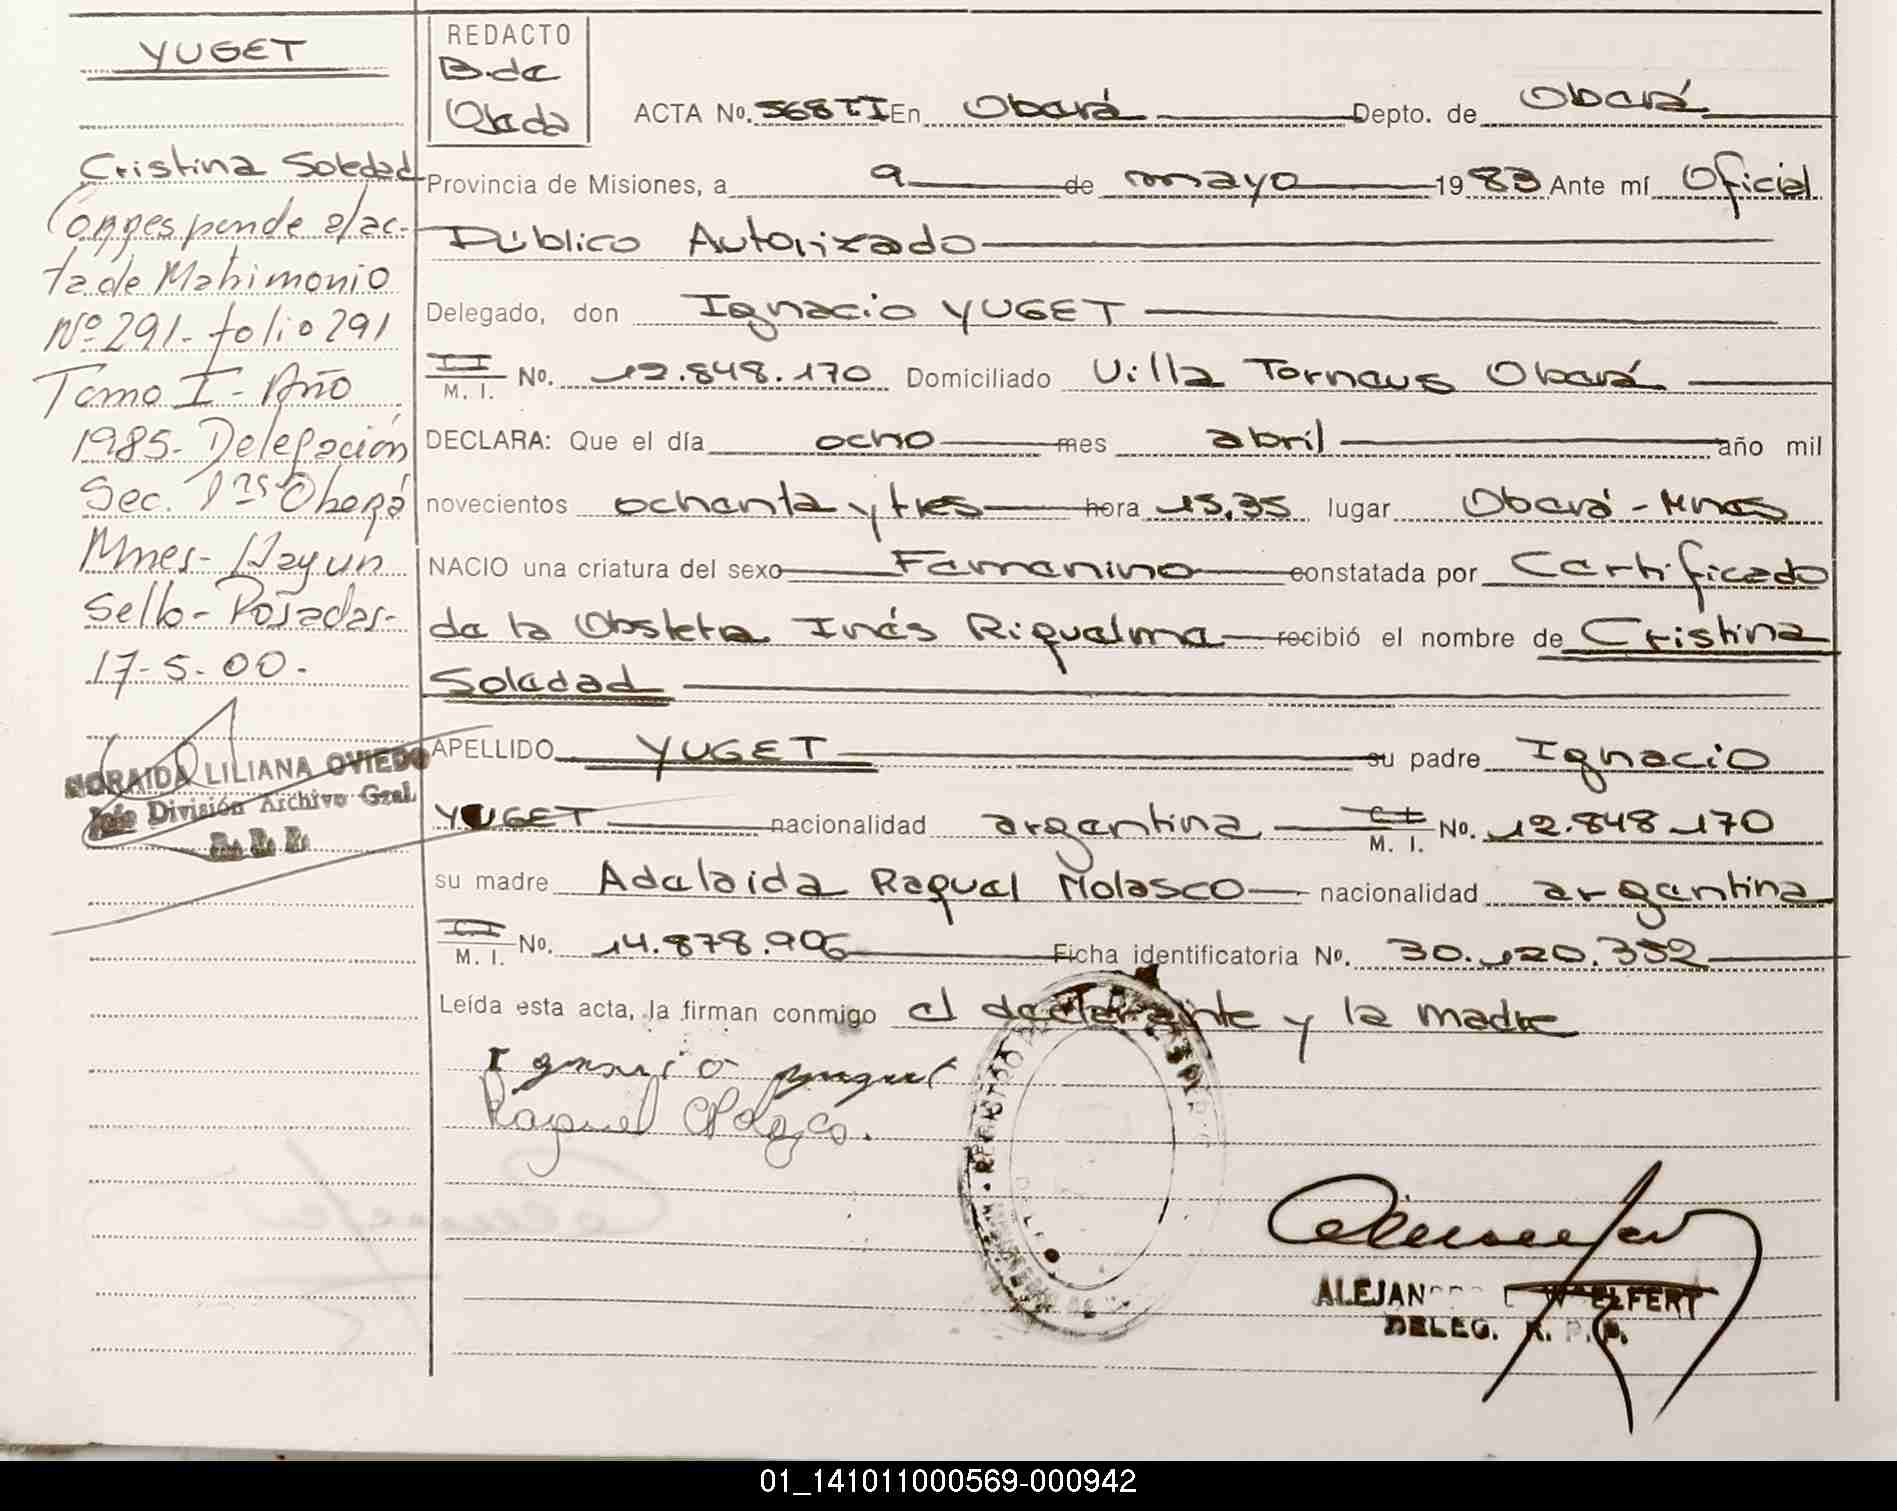 YUGET
Cristina Soledad
Corresponde a/ac-
ta de Matrimonio
Nº 291- folio 291
Tomo I - Año
1985- Delegación
Sec. 1ra Oberá
Mnes- Hay un
Sello- Posadas-
17-5-00.
NORAIDA LILIANA OVIEDO
Jefe División Archivo Gral.
REDACTO
B. de
Ojeda
ACTA No. 568 II En Oberá Depto. de Oberá
Provincia de Misiones, a 9 de mayo 1983 Ante mí Oficial
Público Autorizado
Delegado, don Ignacio YUGET
M. I. No. 12.848.170 Domiciliado Villa Torneus Oberá
DECLARA: Que el día ocho mes abril año mil
novecientos ochenta y tres hora 15,35 lugar Oberá - Mnes
NACIO una criatura del sexo Femenino constatada por Certificado
de la Obstetra Inés Riquelme recibió el nombre de Cristina
Soledad
APELLIDO YUGET su padre Ignacio
YUGET nacionalidad argentina C I M. I. No. 12.848.170
su madre Adelaida Raquel Molasco nacionalidad argentina
C I M. I. No. 14.878.906 Ficha identificatoria No. 30.120.352
Leída esta acta, la firman conmigo el declarante y la madre
Ignacio yuguet
Raquel
ELFERT
DELEG. R. P. P.
01_141011000569-000942